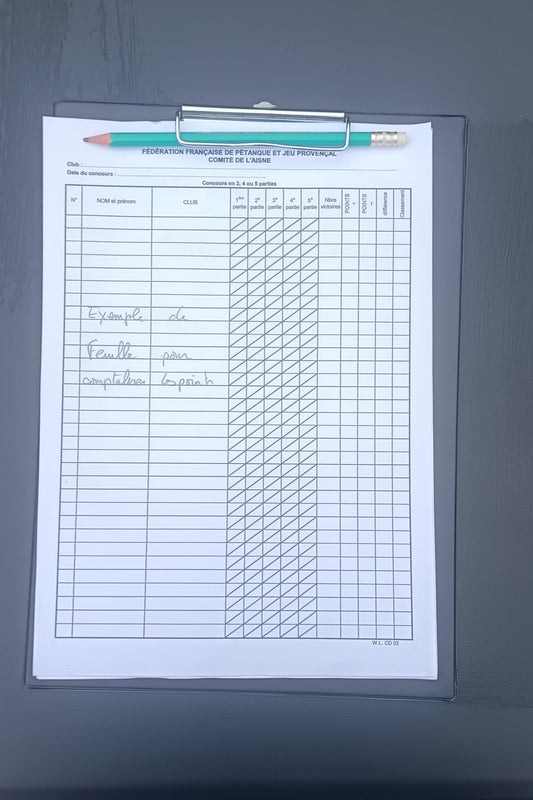 FÉDÉRATION FRANÇAISE DE PÉTANQUE ET JEU PROVENÇAL
COMITÉ DE L'AISNE
Club :
Date du concours :
Concours en 3, 4 ou 5 parties
N° NOM et prénom CLUB 1ère partie 2e partie 3e partie 4e partie 5e partie Nbre victoires POINTS + POINTS - différence Classement
Exemple de
Feuille pour
les points
W.L. CD 02